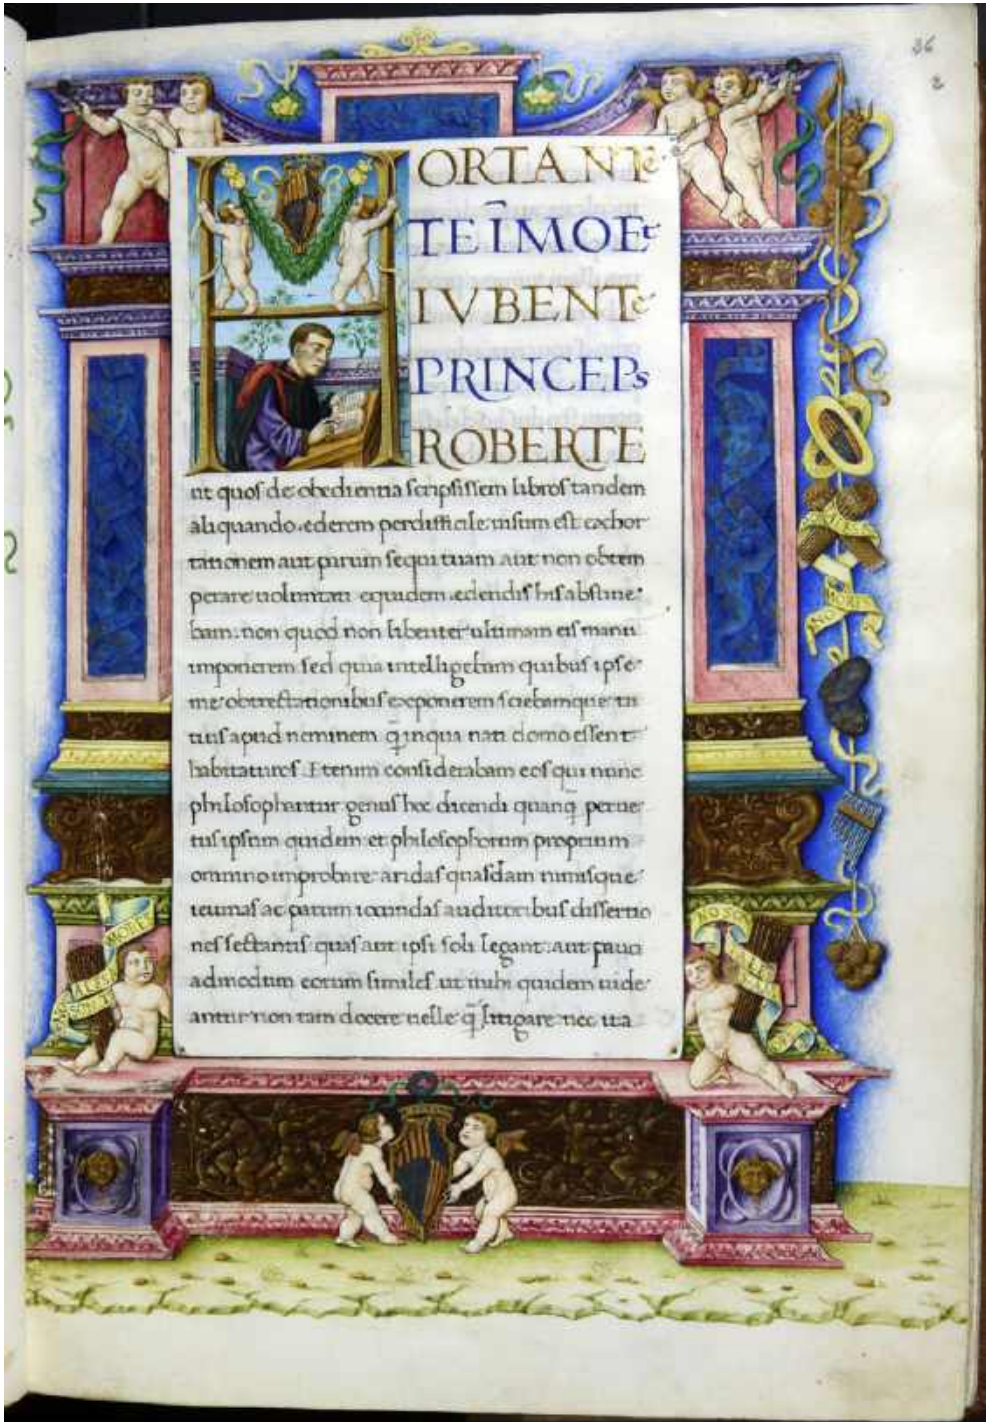 36
2
HORTANTE
TE ĪMO Et
IVBENTE
PRINCEPS
ROBERTE
ut quos de obedientia scripsissem libros tandem
aliquando ederem perdifficile uisum est exhor
tationem aut parum sequi tuam aut non obtem
perare uoluntati equidem edendis his abstine
bam. non quod non libenter ultimam eis manu
imponerem sed quia intelligebam quibus ipse
me obtrectationibus exponerem sciebamque tu
tius apud neminem q̄ in qua nati domo essent
habitaturos. Etenim considerabam eos qui nunc
philosophantur genus hoc dicendi quanq̄ perue
tus ipsum quidem et philosophorum proprium
omnino improbare aridas quasdam nimisque
ieiunas ac parum iocundas auditoribus dissertio
nes sectantis quas aut ipsi soli legant: aut pauci
admodum eorum similes. ut mihi quidem uide
antur non tam docere uelle q̄ litigare nec ita
MORY
ALES
NOSO
ALES
MORY
NO